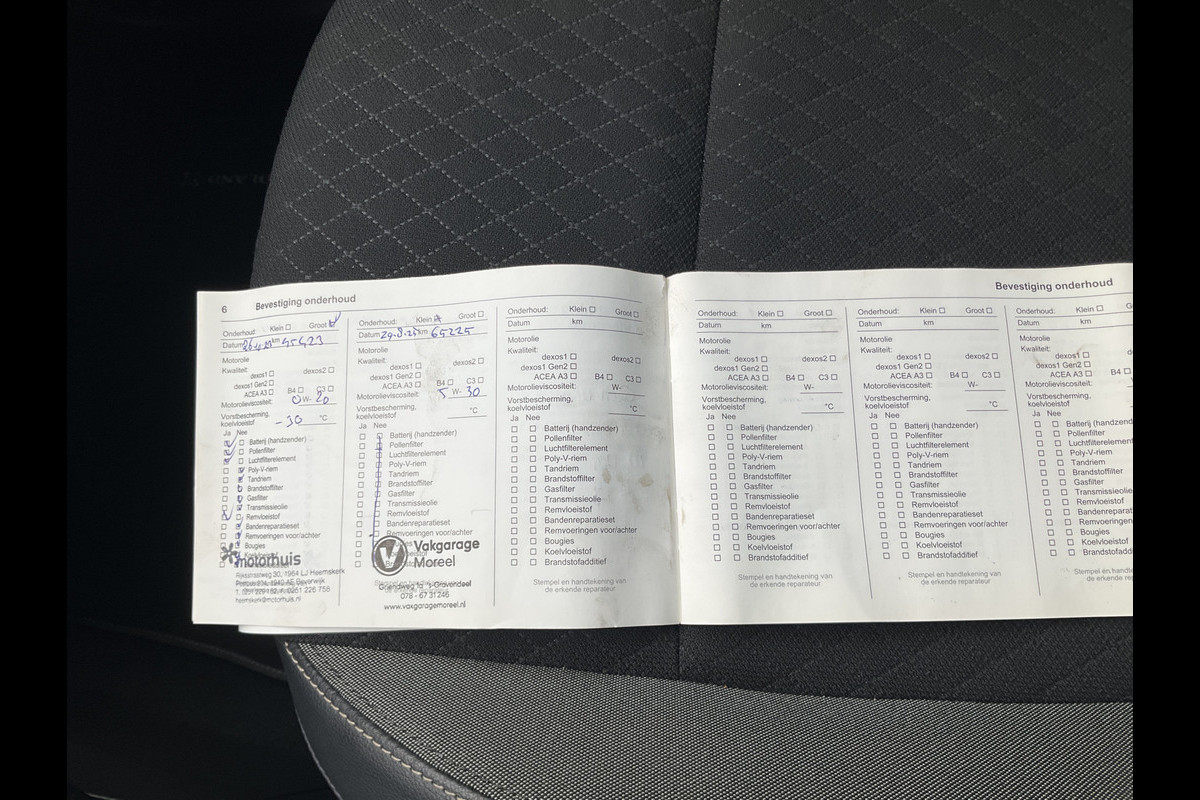 6
Bevestiging onderhoud
Onderhoud: Klein Groot
Datum km 45423
Motorolie
Kwaliteit:
dexos1 dexos2
dexos1 Gen2
ACEA A3 B4 C3
Motorolieviscositeit: 0 W- 20
Vorstbescherming,
koelvloeistof -30 °C
Ja Nee
Batterij (handzender)
Pollenfilter
Luchtfilterelement
Poly-V-riem
Tandriem
Brandstoffilter
Gasfilter
Transmissieolie
Remvloeistof
Bandenreparatieset
Remvoeringen voor/achter
Bougies
motorhuis
Rijksstraatweg 30, 1964 LJ Heemskerk
heemskerk@motorhuis.nl
Onderhoud: Klein Groot
Datum km 65225
Motorolie
Kwaliteit:
dexos1 dexos2
dexos1 Gen2
ACEA A3 B4 C3
Motorolieviscositeit: 5 W- 30
Vorstbescherming,
koelvloeistof °C
Ja Nee
Batterij (handzender)
Pollenfilter
Luchtfilterelement
Poly-V-riem
Tandriem
Brandstoffilter
Gasfilter
Transmissieolie
Remvloeistof
Bandenreparatieset
Remvoeringen voor/achter
V Vakgarage
Moreel
's-Gravendeel
078 - 67 31 246
www.vakgaragemoreel.nl
Onderhoud: Klein Groot
Datum km
Motorolie
Kwaliteit:
dexos1 dexos2
dexos1 Gen2
ACEA A3 B4 C3
Motorolieviscositeit: W-
Vorstbescherming,
koelvloeistof °C
Ja Nee
Batterij (handzender)
Pollenfilter
Luchtfilterelement
Poly-V-riem
Tandriem
Brandstoffilter
Gasfilter
Transmissieolie
Remvloeistof
Bandenreparatieset
Remvoeringen voor/achter
Bougies
Koelvloeistof
Brandstofadditief
Stempel en handtekening van
de erkende reparateur
Bevestiging onderhoud
Onderhoud: Klein Groot
Datum km
Motorolie
Kwaliteit:
dexos1 dexos2
dexos1 Gen2
ACEA A3 B4 C3
Motorolieviscositeit: W-
Vorstbescherming,
koelvloeistof °C
Ja Nee
Batterij (handzender)
Pollenfilter
Luchtfilterelement
Poly-V-riem
Tandriem
Brandstoffilter
Gasfilter
Transmissieolie
Remvloeistof
Bandenreparatieset
Remvoeringen voor/achter
Bougies
Koelvloeistof
Brandstofadditief
Stempel en handtekening van
de erkende reparateur
Onderhoud: Klein Groot
Datum km
Motorolie
Kwaliteit:
dexos1 dexos2
dexos1 Gen2
ACEA A3 B4 C3
Motorolieviscositeit: W-
Vorstbescherming,
koelvloeistof °C
Ja Nee
Batterij (handzender)
Pollenfilter
Luchtfilterelement
Poly-V-riem
Tandriem
Brandstoffilter
Gasfilter
Transmissieolie
Remvloeistof
Bandenreparatieset
Remvoeringen voor/achter
Bougies
Koelvloeistof
Brandstofadditief
Stempel en handtekening van
de erkende reparateur
Onderhoud: Klein G
Datum km
Motorolie
Kwaliteit:
dexos1 d
dexos1 Gen2
ACEA A3 B4
Motorolieviscositeit: W-
Vorstbescherming,
koelvloeistof
Ja Nee
Batterij (handzend
Pollenfilter
Luchtfilterelement
Poly-V-riem
Tandriem
Brandstoffilter
Gasfilter
Transmissieolie
Remvloeistof
Bandenreparat
Remvoeringen
Bougies
Koelvloeistof
Brandstofaddi
Stempel en handte
de erkende re